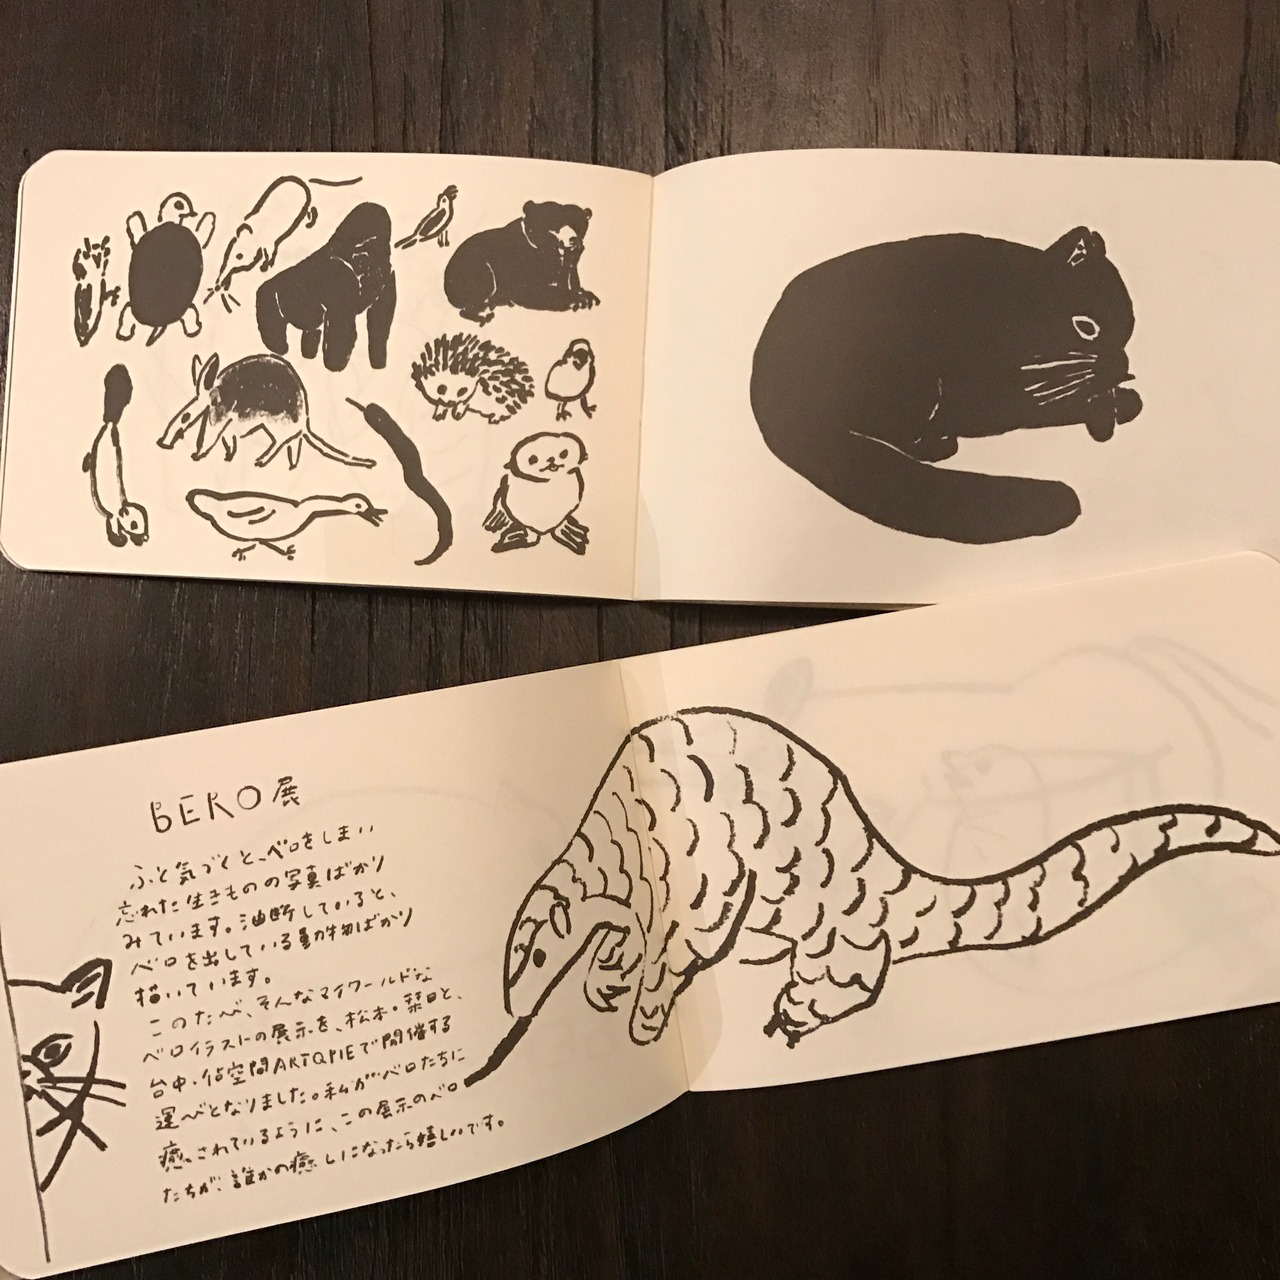 BERO展
ふと気づくと、ベロをしまい
忘れた生きものの写真ばかり
みています。油断していると、
ベロを出している動物ばかり
描いています。
このたび、そんなマイワールドな
ベロイラストの展示を、松本・栞日と、
台中・佔空間ARTQPIEで開催する
運びとなりました。私がベロたちに
癒されているように、この展示のベロ
たちが、誰かの癒しになったら嬉しいです。